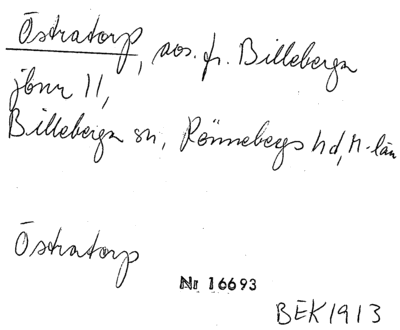 Östratorp, avs. fr. Billeberga
jbnr 11,
Billeberga sn, Rönnebergs hd, M-län
Östratorp
Nr 16693
BEK 1913